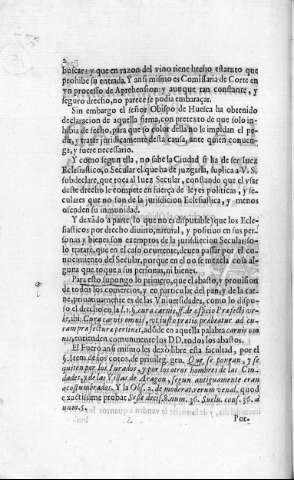 2
buscare: y que en razon del vino tiene hecho estatuto que
prohibe su entrada. Y ansi mismo es Comissaria de Corte en
vn processo de Aprehension: y aunque tan constante, y
seguro drecho, no parece se podia embaraçar.
Sin embargo el señor Obispo de Huesca ha obtenido
declaracion de aquella firma, con pretexto de que solo in-
hibia de fecho, para que so color della no le impidan el pe-
dir, y tratar juridicamente desta causa, ante quien conuen-
ga, y fuere necessario.
Y como segun ella, no sabe la Ciudad si ha de ser Iuez
Eclesiastico, o Secular el que ha de juzgarla, suplica a V. S.
subdeclare, que toca al Iuez Secular, constando que el vsar
deste drecho le compete en fuerça de leyes politicas, y se-
culares que no son de la jurisdicion Eclesiastica, y menos
ofenden su inmunidad.
Y dexado a parte (lo que no es disputable) que los Ecle-
siasticos por drecho diuino, natural, y positiuo en sus per-
sonas, y bienes, son exemptos de la jurisdicion Secular; so-
lo tratarè, que en el caso ocurrente, deuen passar por el co-
nocimiento del Secular, porque en el no se mezcla cosa al-
guna que toque a sus personas, ni bienes.
Para esto supongo lo primero, que el abasto, y prouision
de todos los comercios, y en particular del pan, y de la car-
ne, priuatiuamente es de las Vniuersidades, como lo dispu-
so el drecho en la l. 1. §. cura carnis, ff. de officio Præfecti vr-
bi, ibi: Cura carnis omnis, vt iusto pretio prebeatur ad cu-
ram præfecturæ pertinet, adonde en aquella palabra carnis om-
nis, entienden comunmente los DD. todos los abastos.
El Fuero ansi mismo les dexò libre esta facultad, por el
§. Item de los cotos, de priuileg. gen. Que se pongan, y se
quiten por los Iurados, y por los otros hombres de las Ciu-
dades, y de las Villas de Aragon, segun antiguamente eran
acostumbrados. Y la Obs. 2. de moderat. rerum venal. quod
exactissime probat Sesse decis. 8. num. 36. Suelu. cons. 36. à
num. 5.
Por-